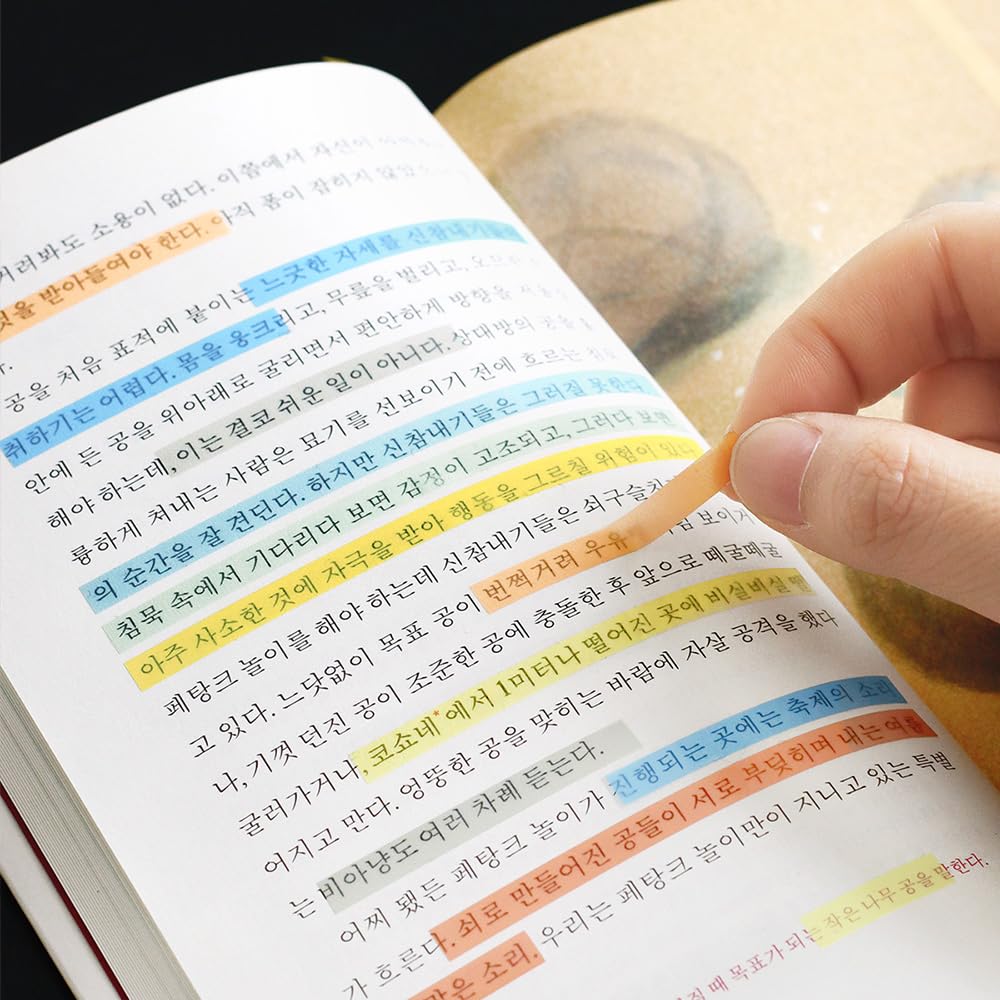 거려봐도 소용이 없다. 이쯤에서 자신이
것을 받아들여야 한다. 아직 폼이 잡히지 않았
공을 처음 표적에 붙이는 느긋한 자세를 신참내기들이
취하기는 어렵다. 몸을 웅크리고, 무릎을 벌리고, 오므린
안에 든 공을 위아래로 굴리면서 편안하게 방향을
해야 하는데, 이는 결코 쉬운 일이 아니다. 상대방의 공을
륭하게 쳐내는 사람은 묘기를 선보이기 전에 흐르는
의 순간을 잘 견딘다. 하지만 신참내기들은 그러질 못한다.
침묵 속에서 기다리다 보면 감정이 고조되고, 그러다 보면
아주 사소한 것에 자극을 받아 행동을 그르칠 위험이 있다.
페탕크 놀이를 해야 하는데 신참내기들은
고 있다. 느닷없이 목표 공이 번쩍거려 우유 보이거
나, 기껏 던진 공이 조준한 공에 충돌한 후 앞으로 떼굴떼굴
굴러가거나, 코쇼네*에서 1미터나 떨어진 곳에 비실비실 떨
어지고 만다. 엉뚱한 공을 맞히는 바람에 자살 공격을 했다
는 비아냥도 여러 차례 듣는다.
어찌 됐든 페탕크 놀이가 진행되는 곳에는 축제의 소리
가 흐른다. 쇠로 만들어진 공들이 서로 부딪히며 내는 여름
같은 소리. 우리는 페탕크 놀이만이 지니고 있는 특별
때 목표가 되는 작은 나무 공을 말한다.